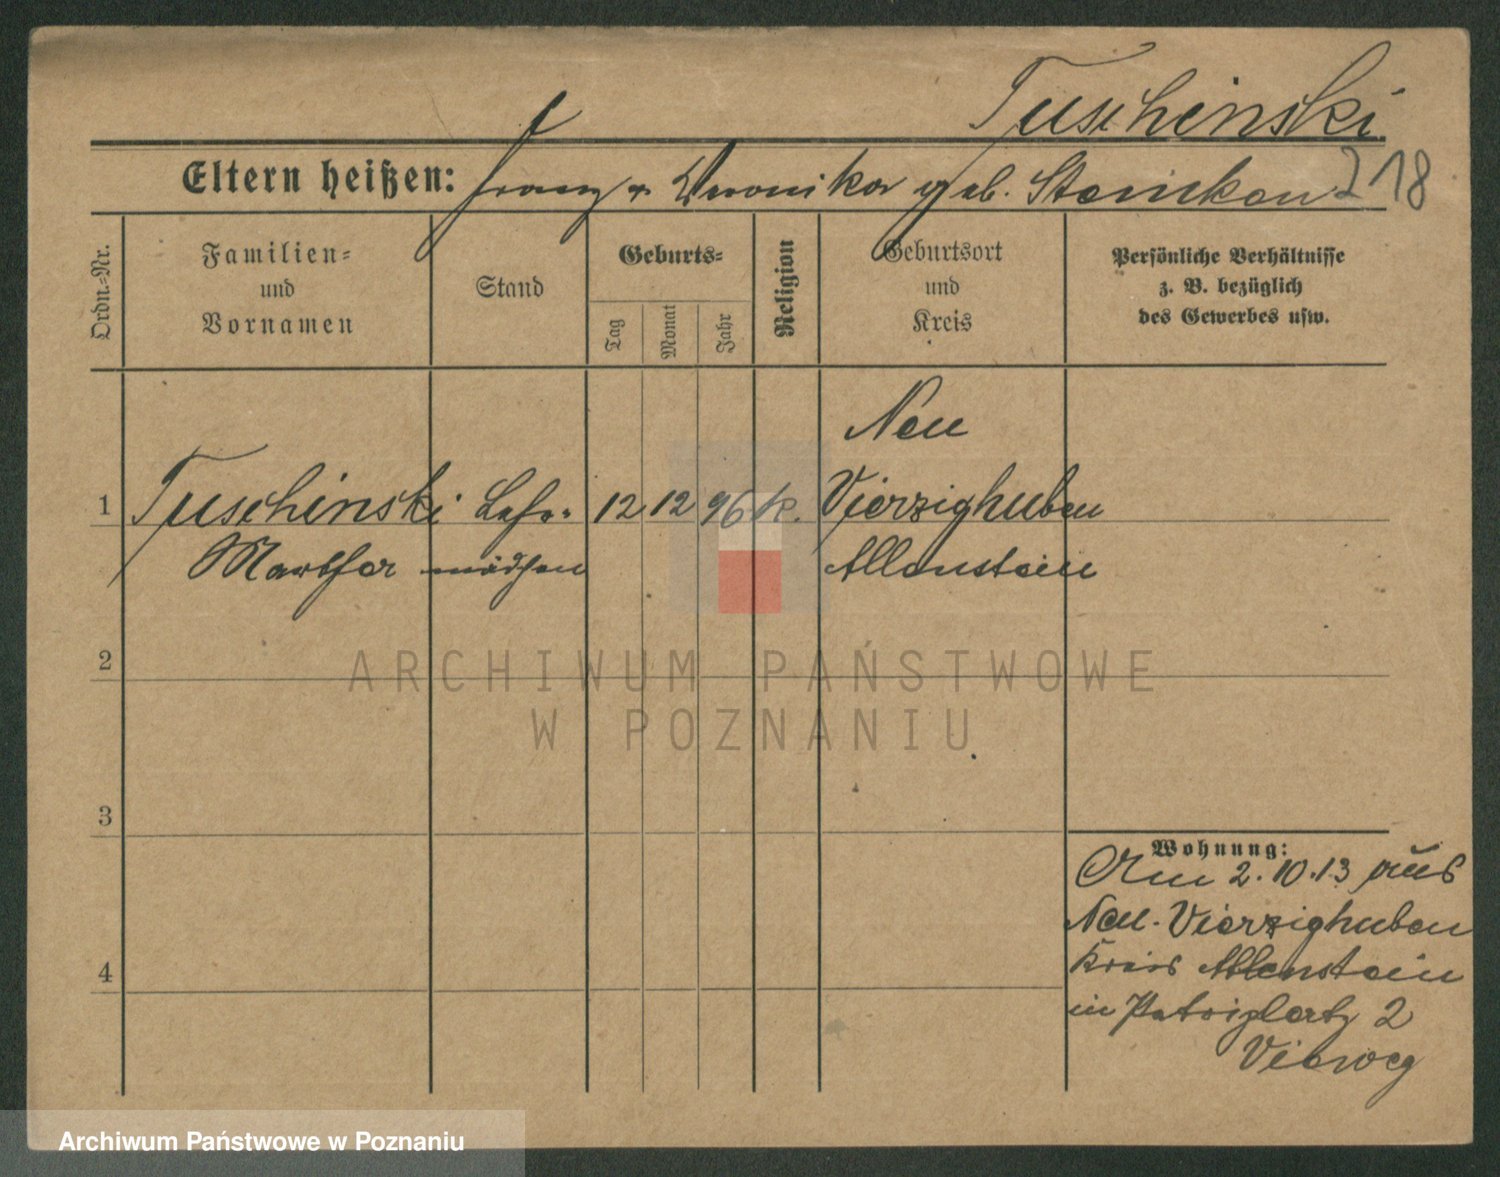 Tuschinski
Eltern heißen: Franz u Veronika geb. Stanikau
218
Ordn.-Nr.
Familien-
und
Vornamen
Stand
Geburts-
Tag
Monat
Jahr
Religion
Geburtsort
und
Kreis
Persönliche Verhältnisse
z. B. bezüglich
des Gewerbes usw.
Neu
1 Tuschinski Lehr- 12 12 96 k. Vierzighuben
Martha mädchen Allenstein
2
ARCHIWUM PAŃSTWOWE
W POZNANIU
3
Wohnung:
Am 2.10.13 aus
Neu-Vierzighuben
4
Kreis Allenstein
in Petriplatz 2
Archiwum Państwowe w Poznaniu